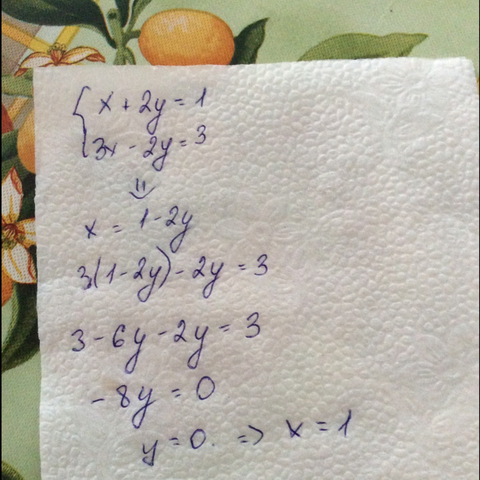 { x + 2y = 1
3x - 2y = 3
⇓
x = 1 - 2y
3(1-2y) - 2y = 3
3 - 6y - 2y = 3
-8y = 0
y = 0. => x = 1